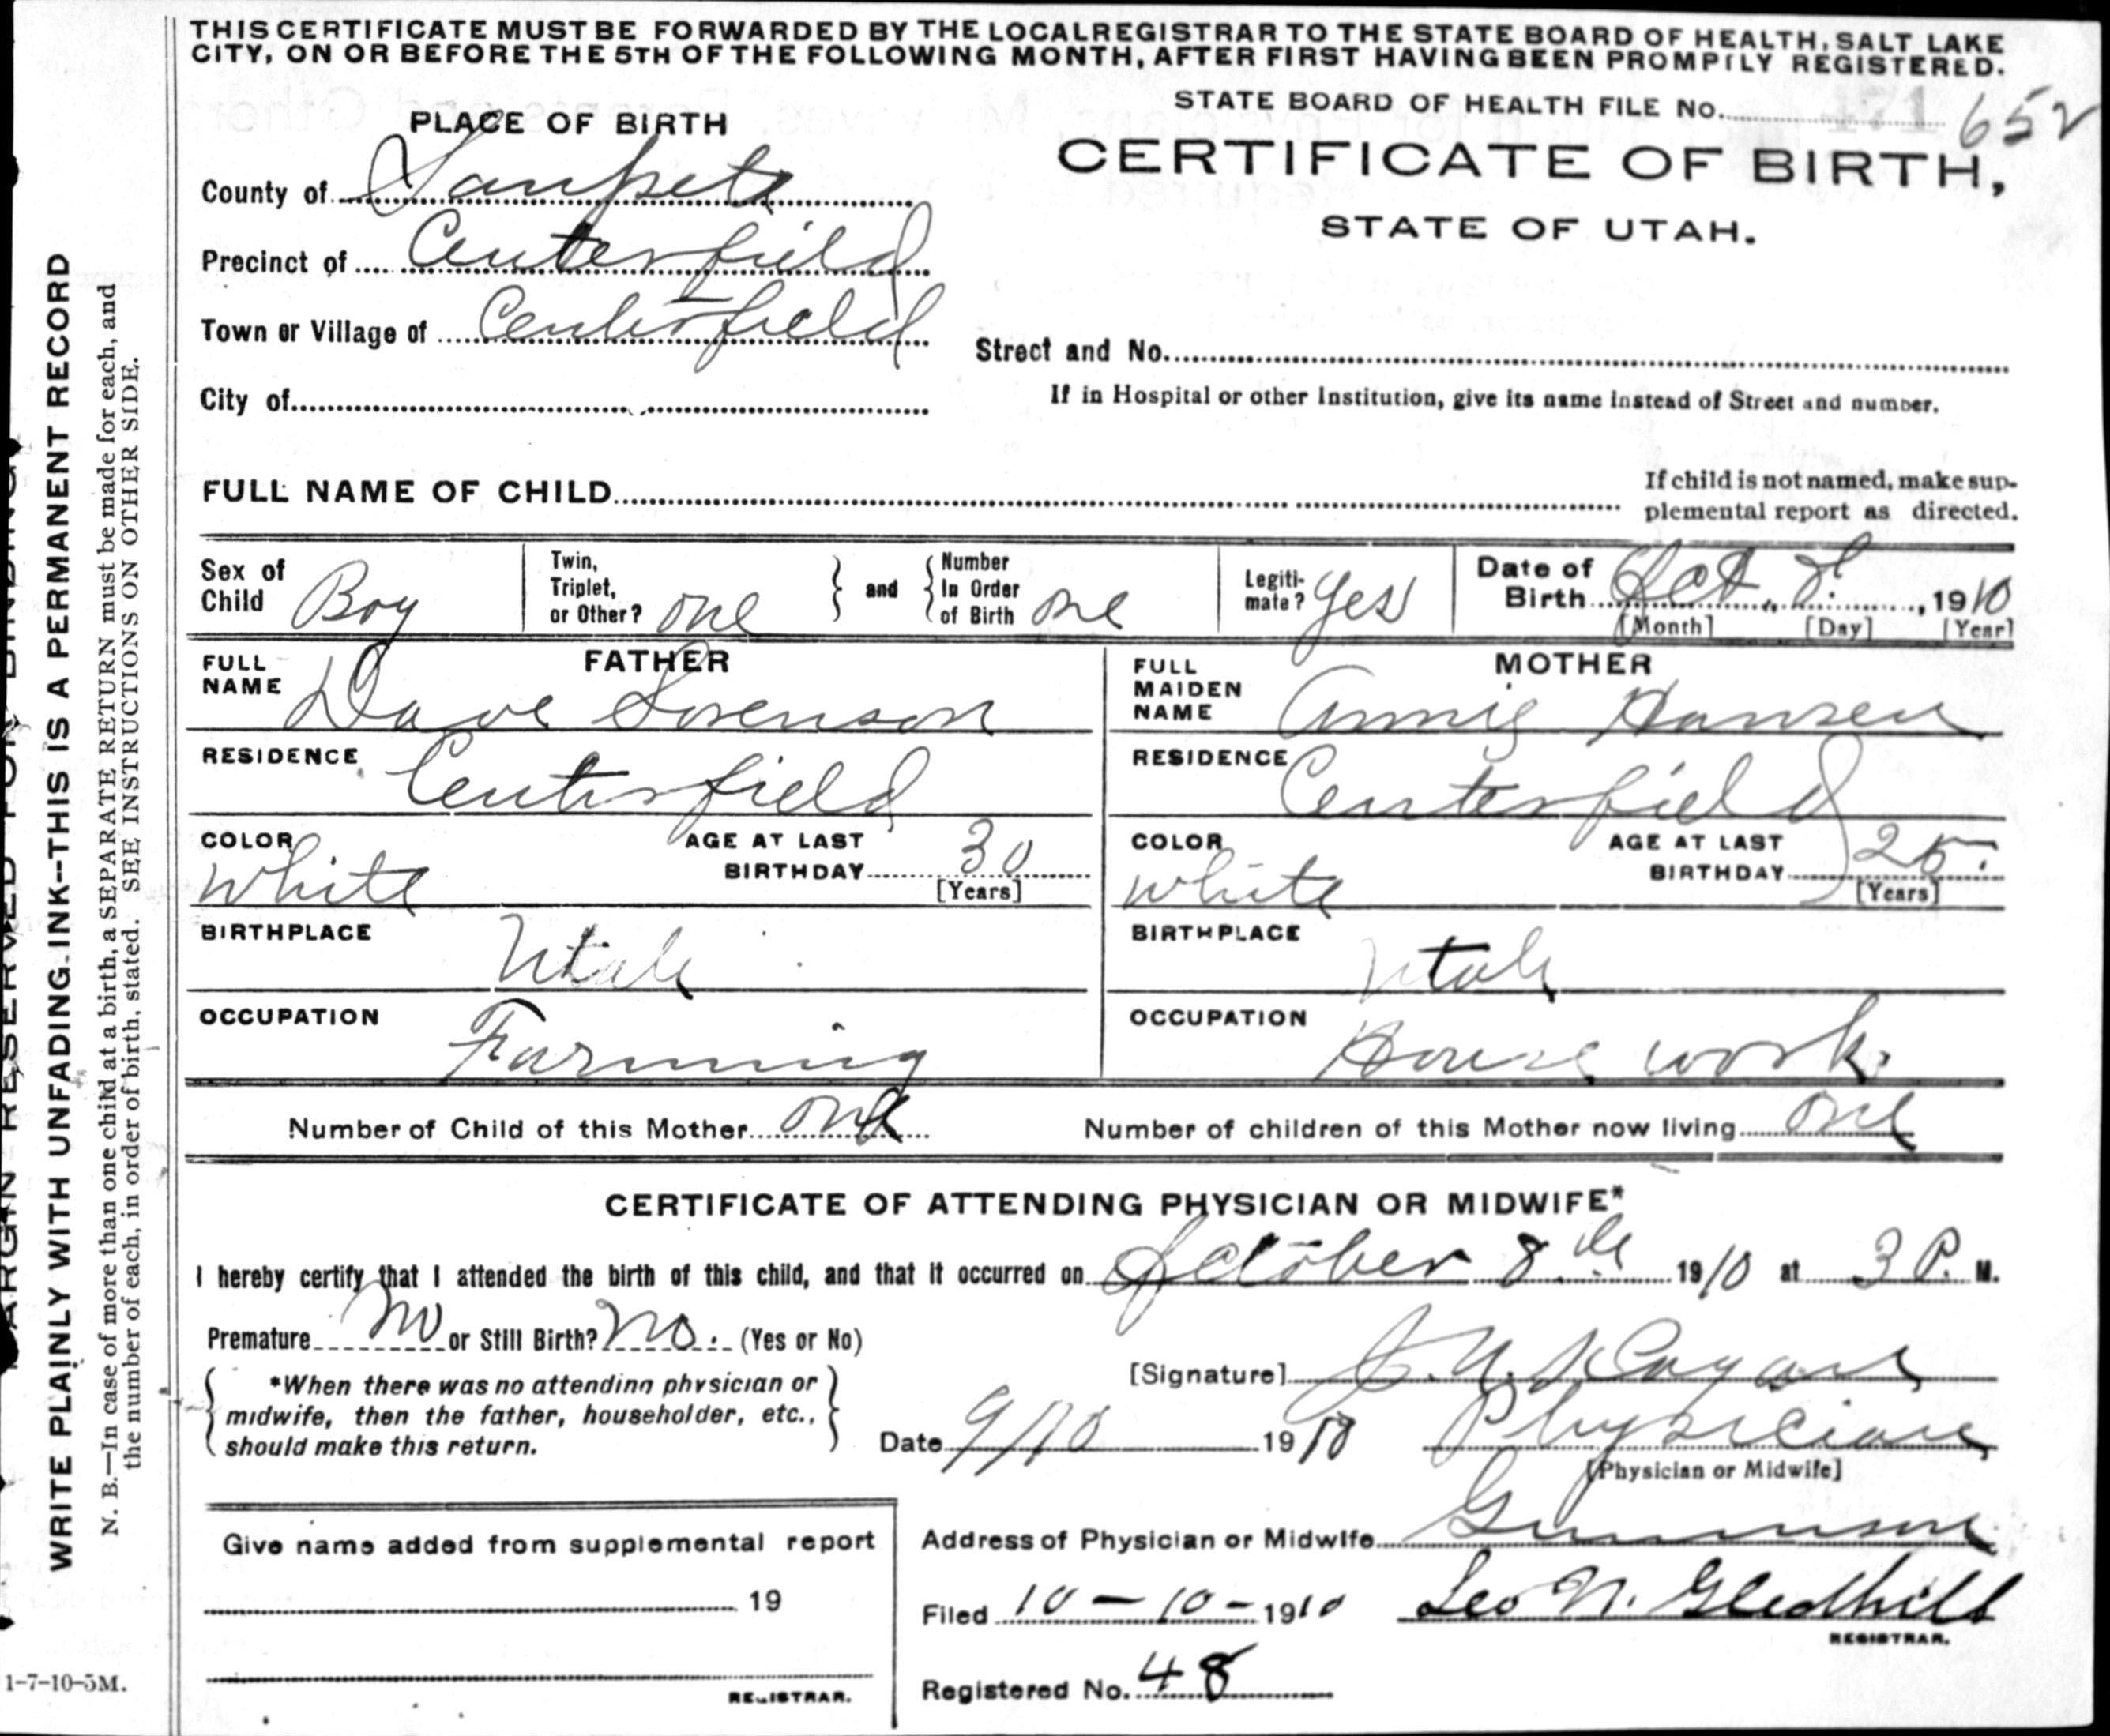 THIS CERTIFICATE MUST BE FORWARDED BY THE LOCAL REGISTRAR TO THE STATE BOARD OF HEALTH, SALT LAKE
CITY, ON OR BEFORE THE 5TH OF THE FOLLOWING MONTH, AFTER FIRST HAVING BEEN PROMPTLY REGISTERED.
STATE BOARD OF HEALTH FILE No. 652
PLACE OF BIRTH
CERTIFICATE OF BIRTH,
STATE OF UTAH.
County of Sanpete
Precinct of Centerfield
Town or Village of Centerfield
Street and No.
City of
If in Hospital or other Institution, give its name instead of Street and number.
FULL NAME OF CHILD
If child is not named, make sup-
plemental report as directed.
Sex of Child Boy
Twin, Triplet, or Other? one
and
Number In Order of Birth one
Legiti-mate? Yes
Date of Birth Oct, 8., 1910
[Month] [Day] [Year]
FATHER
FULL NAME Dave Sorenson
RESIDENCE Centerfield
COLOR White
AGE AT LAST BIRTHDAY 30
[Years]
BIRTHPLACE Utah
OCCUPATION Farming
MOTHER
FULL MAIDEN NAME Annie Hansen
RESIDENCE Centerfield
COLOR White
AGE AT LAST BIRTHDAY 25.
[Years]
BIRTHPLACE Utah
OCCUPATION House work.
Number of Child of this Mother one
Number of children of this Mother now living one
CERTIFICATE OF ATTENDING PHYSICIAN OR MIDWIFE*
I hereby certify that I attended the birth of this child, and that it occurred on October 8th 1910 at 3 P. M.
Premature No or Still Birth? No. (Yes or No)
*When there was no attending physician or
midwife, then the father, householder, etc.,
should make this return.
[Signature]
Date 9/10 1910 Physician
[Physician or Midwife]
Give name added from supplemental report
19
REGISTRAR.
Address of Physician or Midwife Gunnison
Filed 10-10-1910 Leo N. Gledhill
REGISTRAR.
Registered No. 48
MARGIN RESERVED FOR BINDING
WRITE PLAINLY WITH UNFADING INK--THIS IS A PERMANENT RECORD
N. B.—In case of more than one child at a birth, a SEPARATE RETURN must be made for each, and
the number of each, in order of birth, stated. SEE INSTRUCTIONS ON OTHER SIDE.
1-7-10-5M.